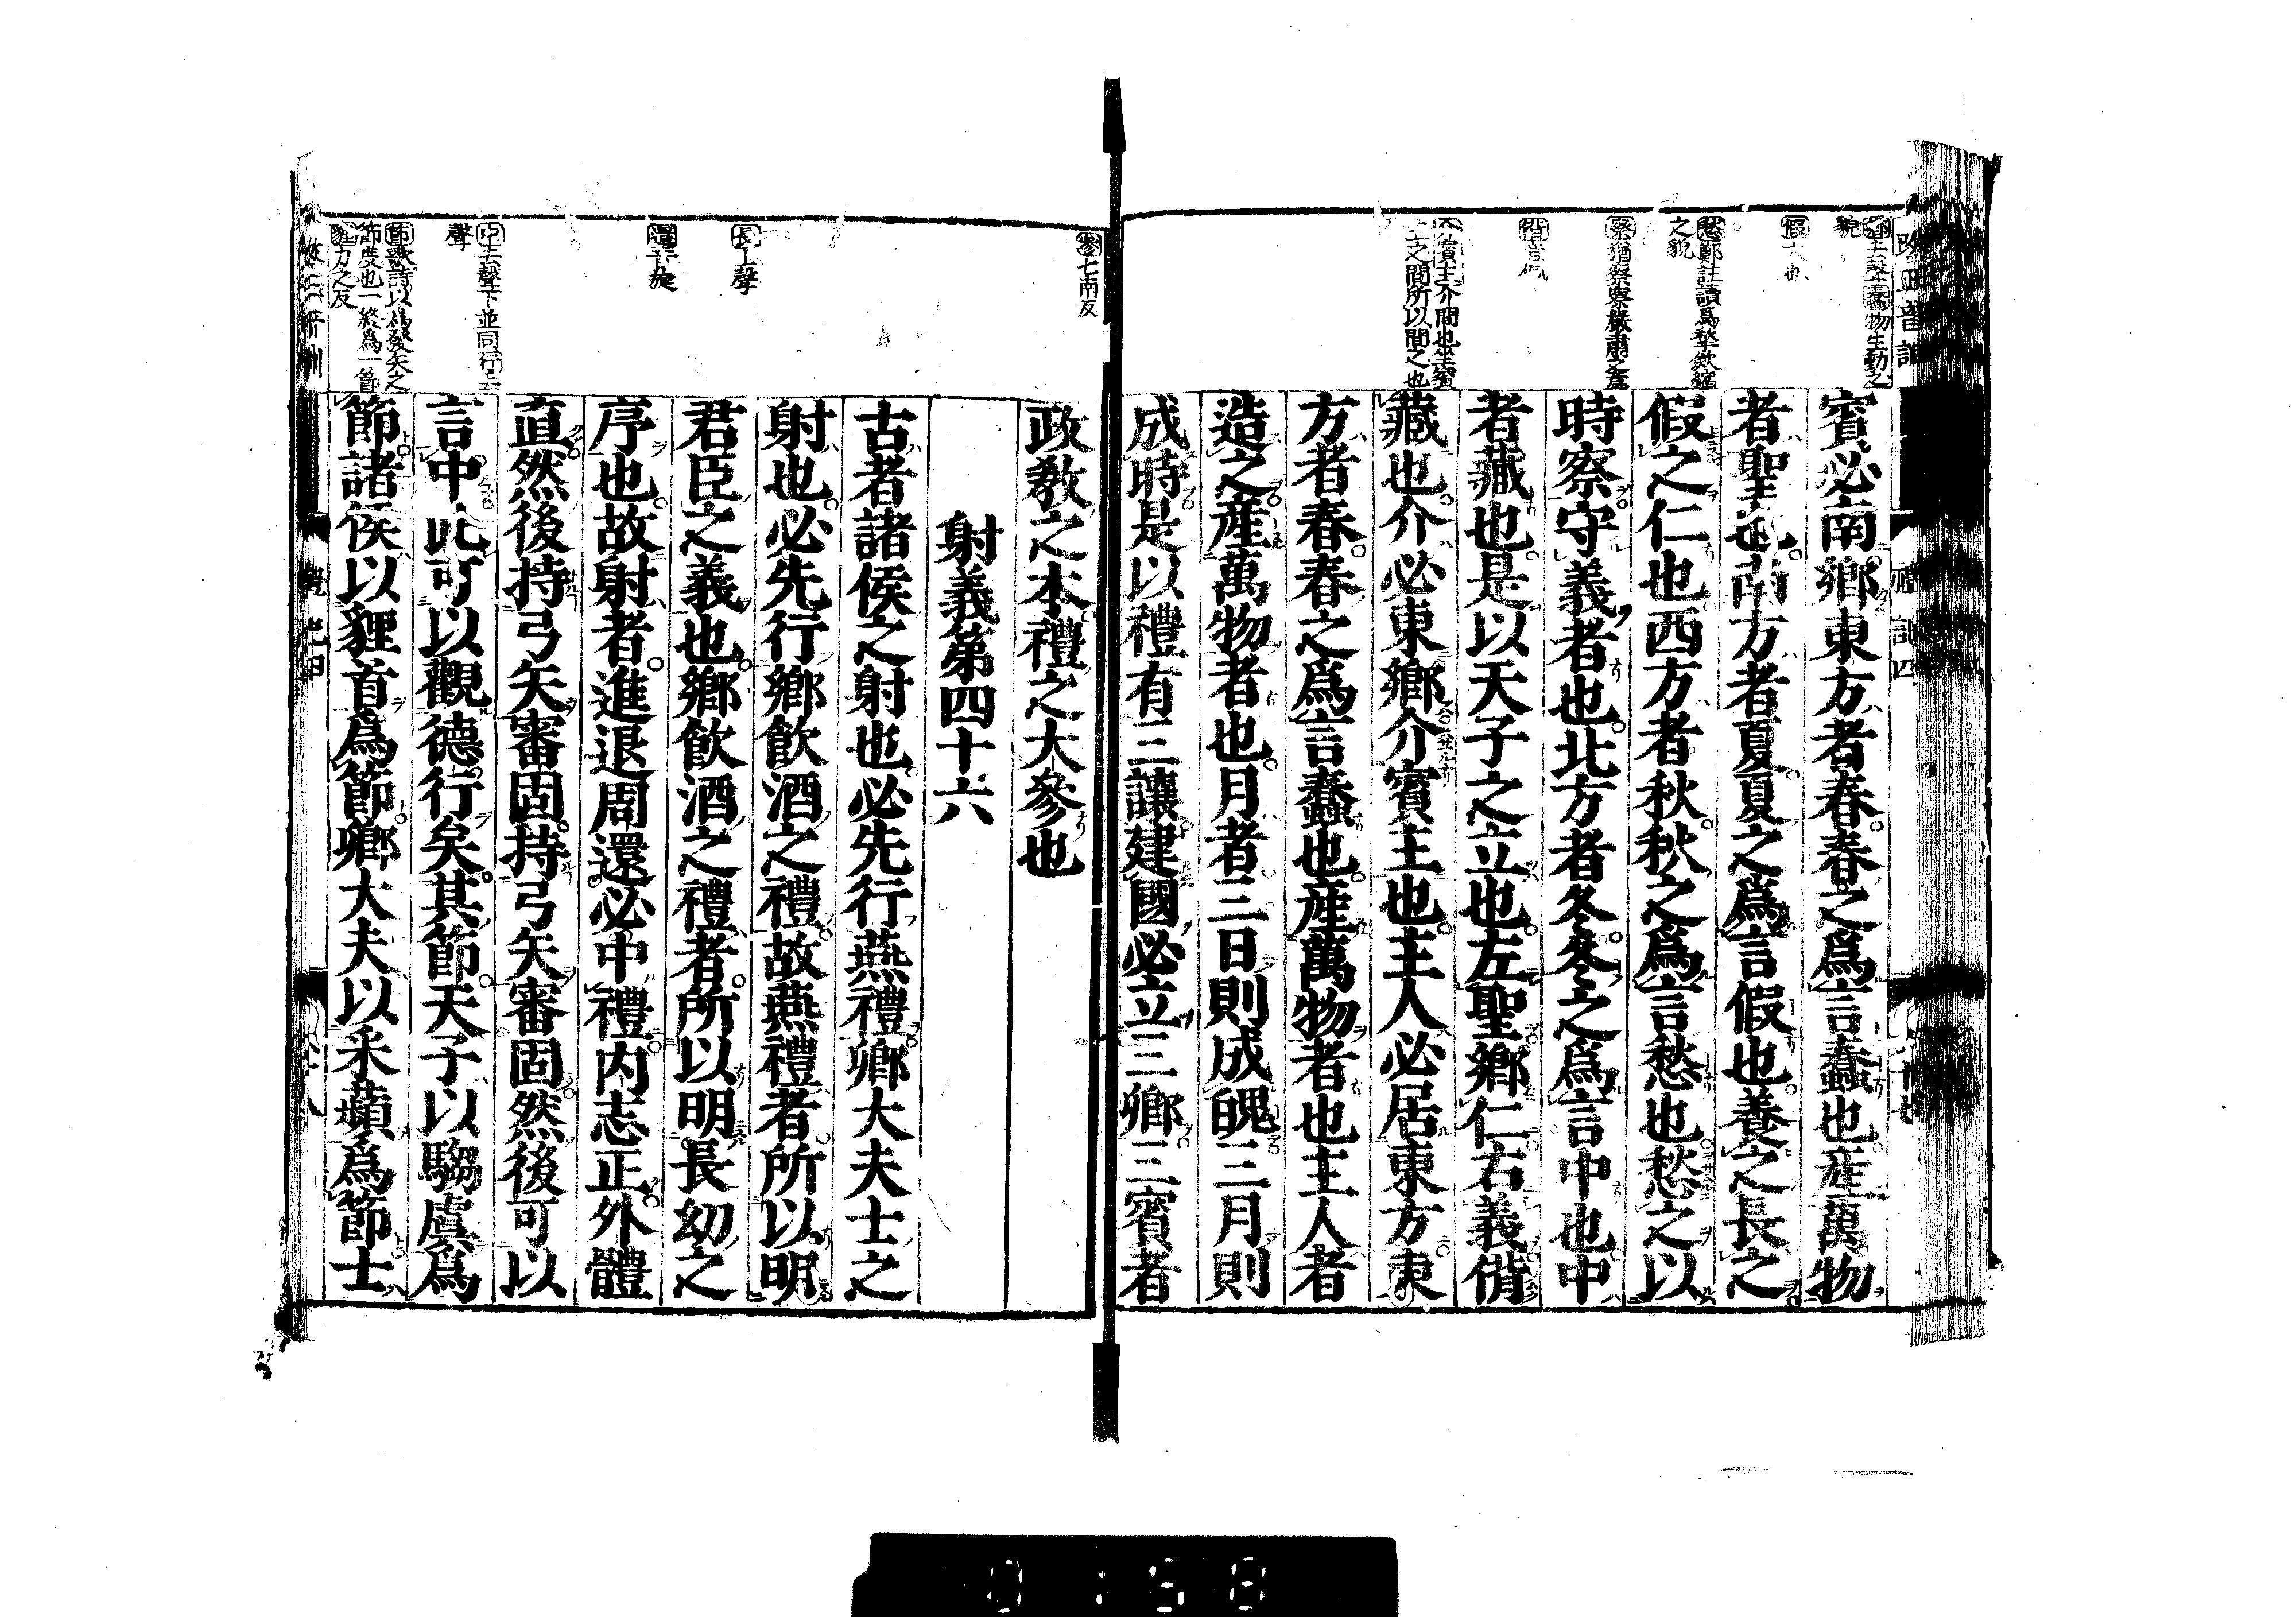 賓必南鄉東方者春春之爲言蠢也産萬物
者聖也南方者夏夏之爲言假也養之長之
假之仁也西方者秋秋之爲言愁也愁之以
時察守義者也北方者冬冬之爲言中也中
者藏也是以天子之立也左聖鄉仁右義偝
藏也介必東鄉介賓主也主人必居東方東
方者春春之爲言蠢也産萬物者也主人者
造之産萬物者也月者三日則成魄三月則
成時是以禮有三讓建國必立三鄉三賓者
政教之本禮之大參也
射義第四十六
古者諸侯之射也必先行燕禮鄉大夫士之
射也必先行鄉飲酒之禮故燕禮者所以明
君臣之義也鄉飲酒之禮者所以明長幼之
序也故射者進退周還必中禮内志正外體
直然後持弓矢審固持弓矢審固然後可以
言中此可以觀德行矣其節天子以騶虞爲
節諸侯以貍首爲節鄉大夫以采蘋爲節士
鄉去聲蠢物生動之
貌
假大也
愁鄭註讀爲揫斂縮
之貌
察猶察察嚴肅之爲
偝音佩
賓主介間也坐賓
主之間所以間之也
參七南反
長上聲
還音旋
中去聲下並同行去
聲
節歌詩以爲發矢之
節度也一終爲一節
貍力之反